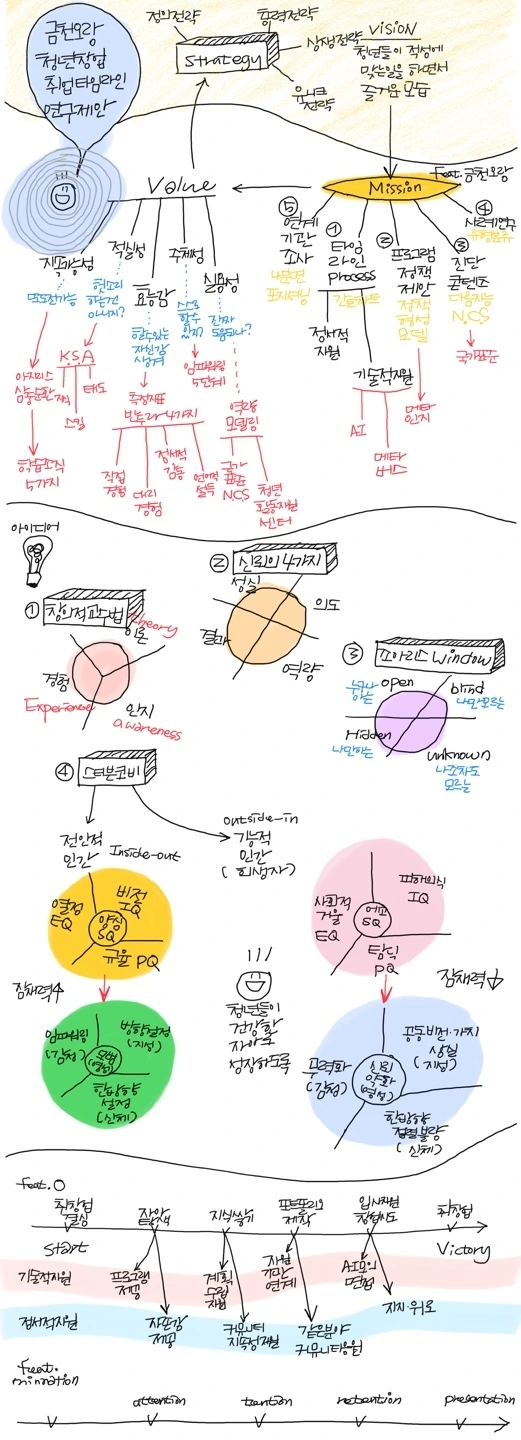 금천오랑
청년창업
취업타임라인
연구제안
정의전략
협력전략
상생전략
유니크
전략
strategy
VISION
청년들이 적성에
맞는일을 하면서
즐거운 모습
Feat. 금천오랑
Mission
Value
지속가능성
도도한가능
적실성
헛소리
하는건
아니지?
효능감
할수있는
자신감
생겨
주체성
스스로
할수
있지?
실용성
진짜
도움되나?
KSA
지식
스킬
태도
상승순환
학습조직
5가지
측정지표
반두라 4가지
직접
경험
대리
경험
정서적
감동
언어적
설득
임파워링
5단계
역량
모델링
국가
표준
NCS
청년
활동지원
센터
⑤
연계
기관
조사
4분면
포지셔닝
①
타임
라인
process
간트차트
정서적
지원
기술적지원
AI
메타
버스
②
프로그램
정책
제안
정책
형성
모델
메타
인지
③
진단
콘텐츠
다중지능
N.C.S
국가표준
④
사례연구
유형분류
아이디어
①
창의적교수법
theory
이론
경험
Experience
인지
awareness
②
신뢰의 4가지
성실
의도
결과
역량
③
조하리스 window
누구나
아는
open
blind
나만모르는
Hidden
나만아는
unknown
나조차도
모르는
④
스티븐코비
전인적
인간
Inside-out
outside-in
기능적
인간
(희생자)
열정
EQ
비전
IQ
양심
SQ
규율 PQ
사회적
거울
EQ
피해의식
IQ
에고
SQ
탐닉
PQ
잠재력↑
잠재력↓
임파워링
(감정)
방향설정
(지성)
모범
(영성)
한방향
설정
(신체)
청년들이
건강한
자아로
성장하도록
무력화
(감정)
공동비전·가치
상실
(지성)
신뢰
약화
(영성)
한방향
정렬불량
(신체)
feat. O
취창업
결심
자아
탐색
지식쌓기
포트폴리오
제작
입사지원
창업시도
취창업
start
Victory
기술적지원
프로그램
제공
계획
수립
자원
기관
연계
AI모의
면접
정서적지원
자존감
제공
커뮤니티
지속적지원
같은분야
커뮤니티응원
지지·위로
feat.
mination
attention
tantion
retention
presentation